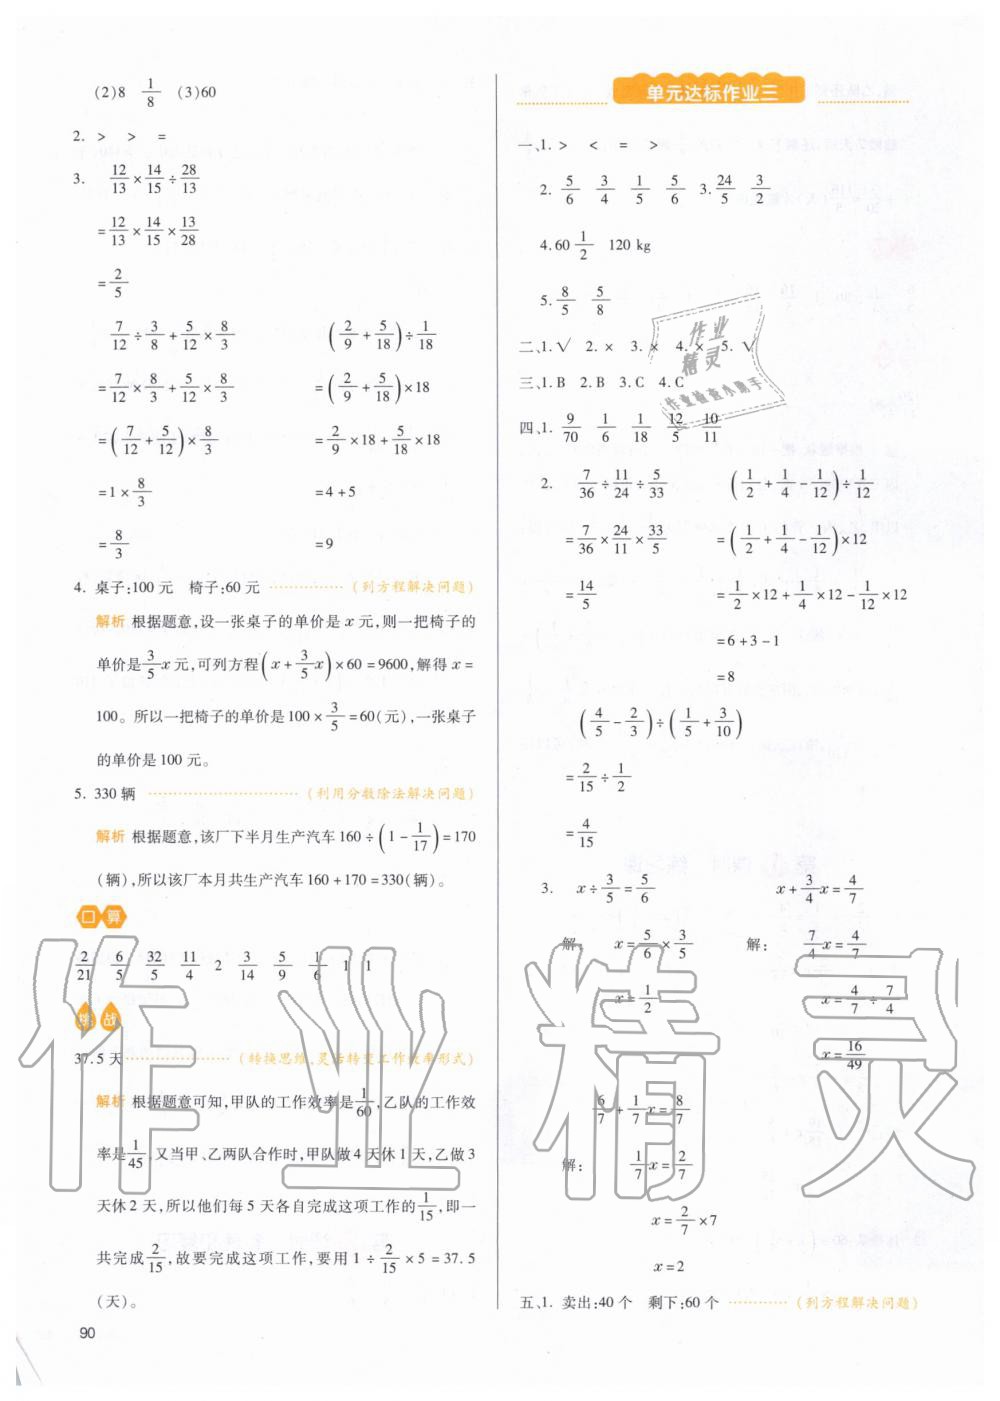 (2)8 1/8 (3)60
2. > > =
3. 12/13×14/15÷28/13
=12/13×14/15×13/28
=2/5
7/12÷3/8+5/12×8/3 (2/9+5/18)÷1/18
=7/12×8/3+5/12×8/3 =(2/9+5/18)×18
=(7/12+5/12)×8/3 =2/9×18+5/18×18
=1×8/3 =4+5
=8/3 =9
4. 桌子:100元 椅子:60元 ………… (列方程解决问题)
解析 根据题意,设一张桌子的单价是x元,则一把椅子的
单价是3/5x元,可列方程(x+3/5x)×60=9600,解得x=
100。所以一把椅子的单价是100×3/5=60(元),一张桌子
的单价是100元。
5. 330辆 ………… (利用分数除法解决问题)
解析 根据题意,该厂下半月生产汽车160÷(1-1/17)=170
(辆),所以该厂本月共生产汽车160+170=330(辆)。
口算
2/21 6/5 32/5 11/4 2 3/14 5/9 1/6 1 1
挑战
37.5天 ………… (转换思维,灵活转变工作效率形式)
解析 根据题意可知,甲队的工作效率是1/60,乙队的工作效
率是1/45,又当甲、乙两队合作时,甲队做4天休1天,乙做3
天休2天,所以他们每5天各自完成这项工作的1/15,即一
共完成2/15,故要完成这项工作,要用1÷2/15×5=37.5
(天)。
90
单元达标作业三
一、1. > < = >
2. 5/6 3/4 1/5 5/6 3. 24/5 3/2
4. 60 1/2 120 kg
5. 8/5 5/8
二、1. √ 2. × 3. × 4. × 5. √
三、1. B 2. B 3. C 4. C
四、1. 9/70 1/6 1/18 12/5 10/11
2. 7/36÷11/24÷5/33 (1/2+1/4-1/12)÷1/12
=7/36×24/11×33/5 =(1/2+1/4-1/12)×12
=14/5 =1/2×12+1/4×12-1/12×12
=6+3-1
=8
(4/5-2/3)÷(1/5+3/10)
=2/15÷1/2
=4/15
3. x÷3/5=5/6 x+3/4x=4/7
解: x=5/6×3/5 解: 7/4x=4/7
x=1/2 x=4/7÷7/4
x=16/49
6/7+1/7x=8/7
解: 1/7x=2/7
x=2/7×7
x=2
五、1. 卖出:40个 剩下:60个 ………… (列方程解决问题)
作业
精灵
作业检查小帮手
作业精灵